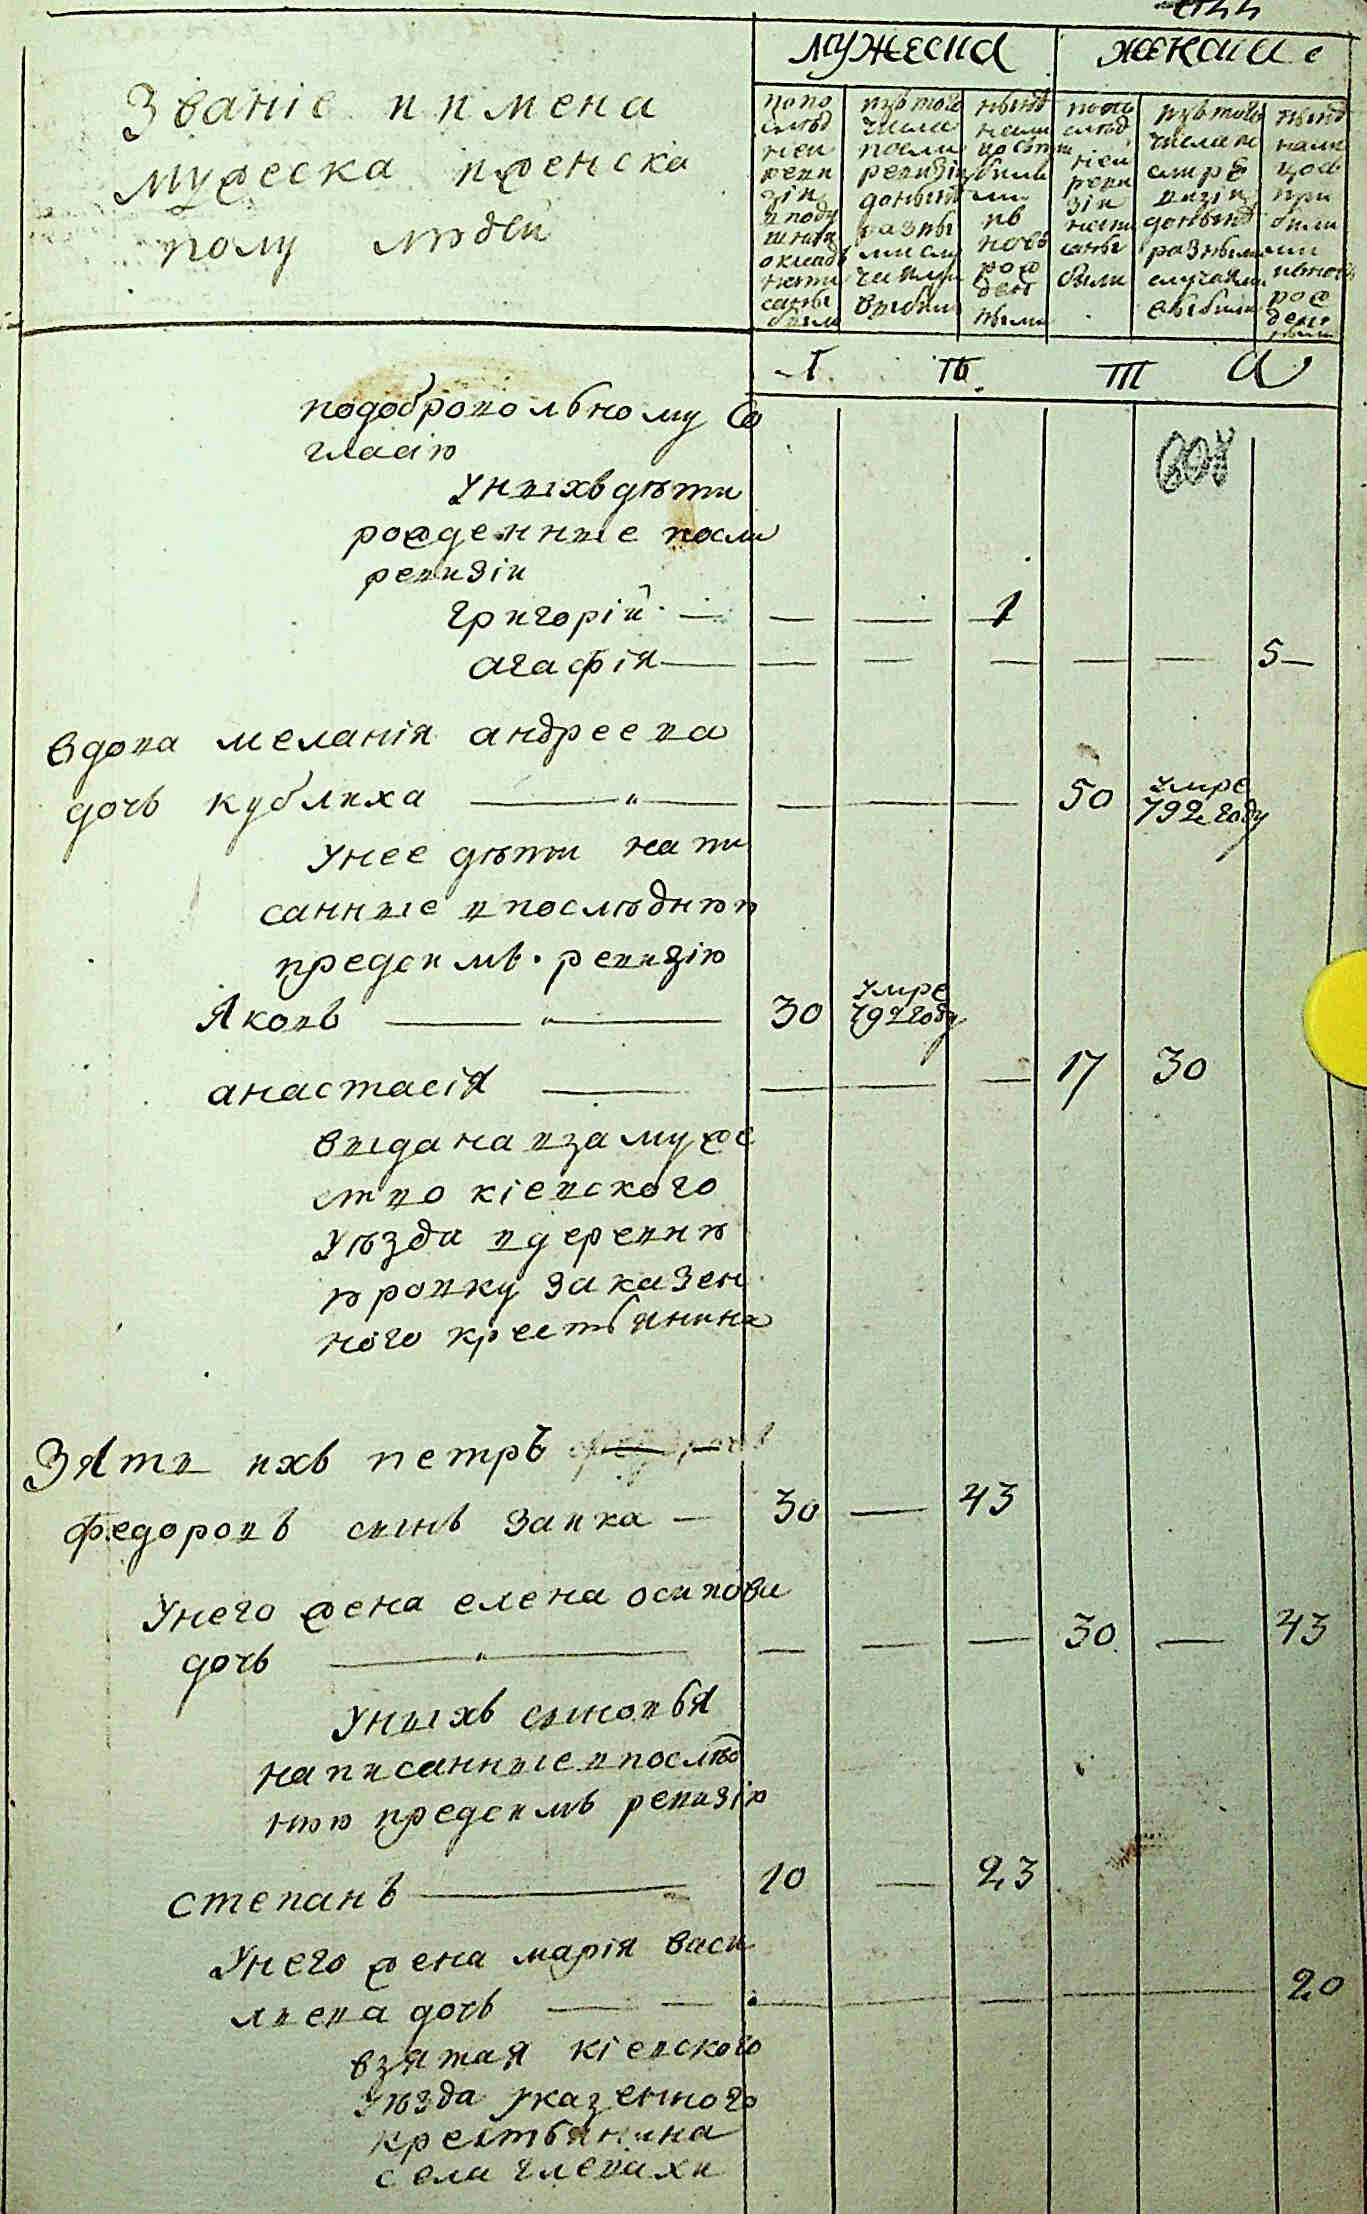 мужеска
женска
Званіе и имена
мужеска и женска
полу людей
по по
след
ней
реви
зіи
в поду
шной
окладъ
напи
саны
были
изъ того
числа
после
ревизіи
доныне
разны
ми слу
чаями
выбыли
ныне
нали
цо съ
при
были
ми
и въ
новь
рож
ден
ными
по по
след
ней
реви
зіи
напи
саны
были
изъ того
числа по
сле ре
визіи
доныне
разными
случаями
выбыли
ныне
нали
цо съ
при
были
ми
и вновь
рож
ден
ными
I
II
III
подобровольному со
гласію
у нихъ дѣти
рожденные после
ревизіи
григорій
1
агафія
5
вдова меланія андреева
дочь кублиха
50
умре
792 году
у нее дѣти напи
санные в последнюю
пред симъ ревизію
яковъ
30
умре
792 году
анастасія
17
30
выдана в замуже
ство кіевского
уѣзда в деревню
юровку за казен
ного крестьянина
зять ихъ петръ
федоровъ сынъ заика
30
43
у него жена елена осипова
дочь
30
43
у нихъ сыновья
написанные в послѣд
нюю пред симъ ревизію
степанъ
10
23
у него жена марія васи
лиева дочь
20
взятая кіевского
уѣзда у казенного
крестьянина
села глевахи